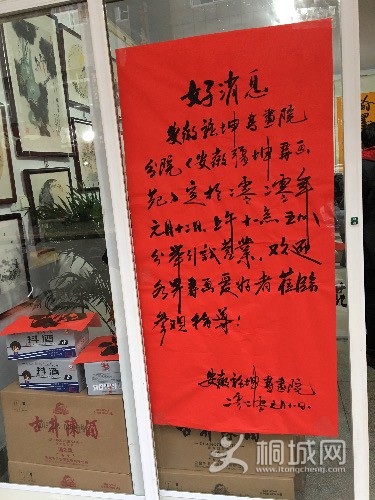 好消息
安徽福坤书画院
分院《安徽福坤书画
苑》定於二零二零年
元月十二日上午十点五八
分举引试营业，欢迎
各界书画爱好者莅临
参观指导！
安徽福坤书画院
二零二零元月十一日
抖酒
抖酒
古井陳酒
桐城网
www.itongcheng.com